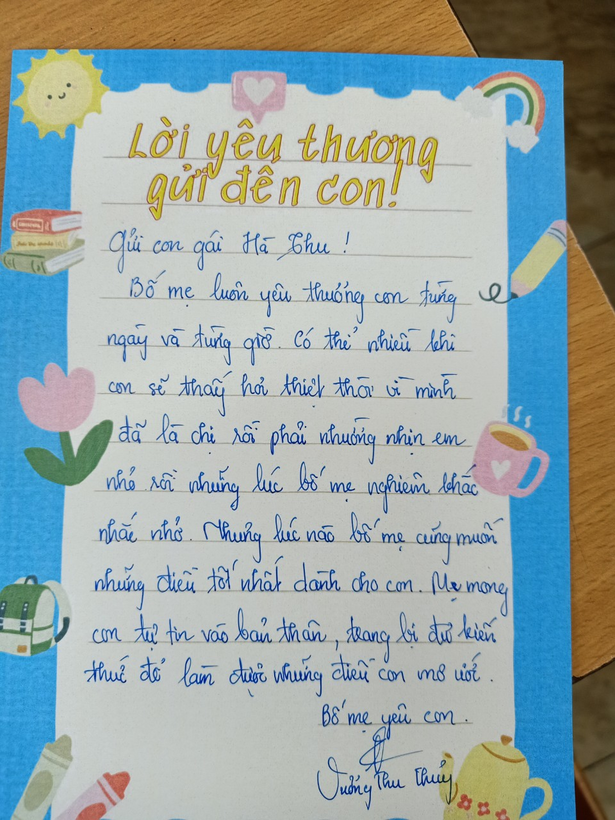 Lời yêu thương
gửi đến con!
Gửi con gái Hà Thu !
Bố mẹ luôn yêu thương con từng
ngày và từng giờ. Có thể nhiều khi
con sẽ thấy hơi thiệt thòi vì mình
đã là chị rồi phải nhường nhịn em
nhỏ rồi những lúc bố mẹ nghiêm khắc
nhắc nhở. Nhưng lúc nào bố mẹ cũng muốn
những điều tốt nhất dành cho con. Mẹ mong
con tự tin vào bản thân, trang bị đủ kiến
thức để làm được những điều con mơ ước.
Bố mẹ yêu con.
Vương Thu Thủy